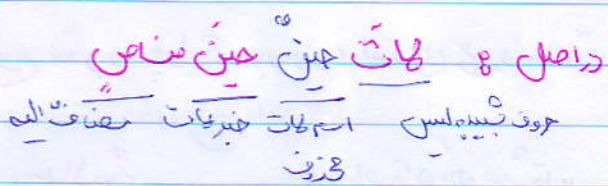 دراصل : لاتَ حینٌ حینَ مناصٍ
حروف شبیه لیس اسم لات خبر لات مضاف الیه
محذوف